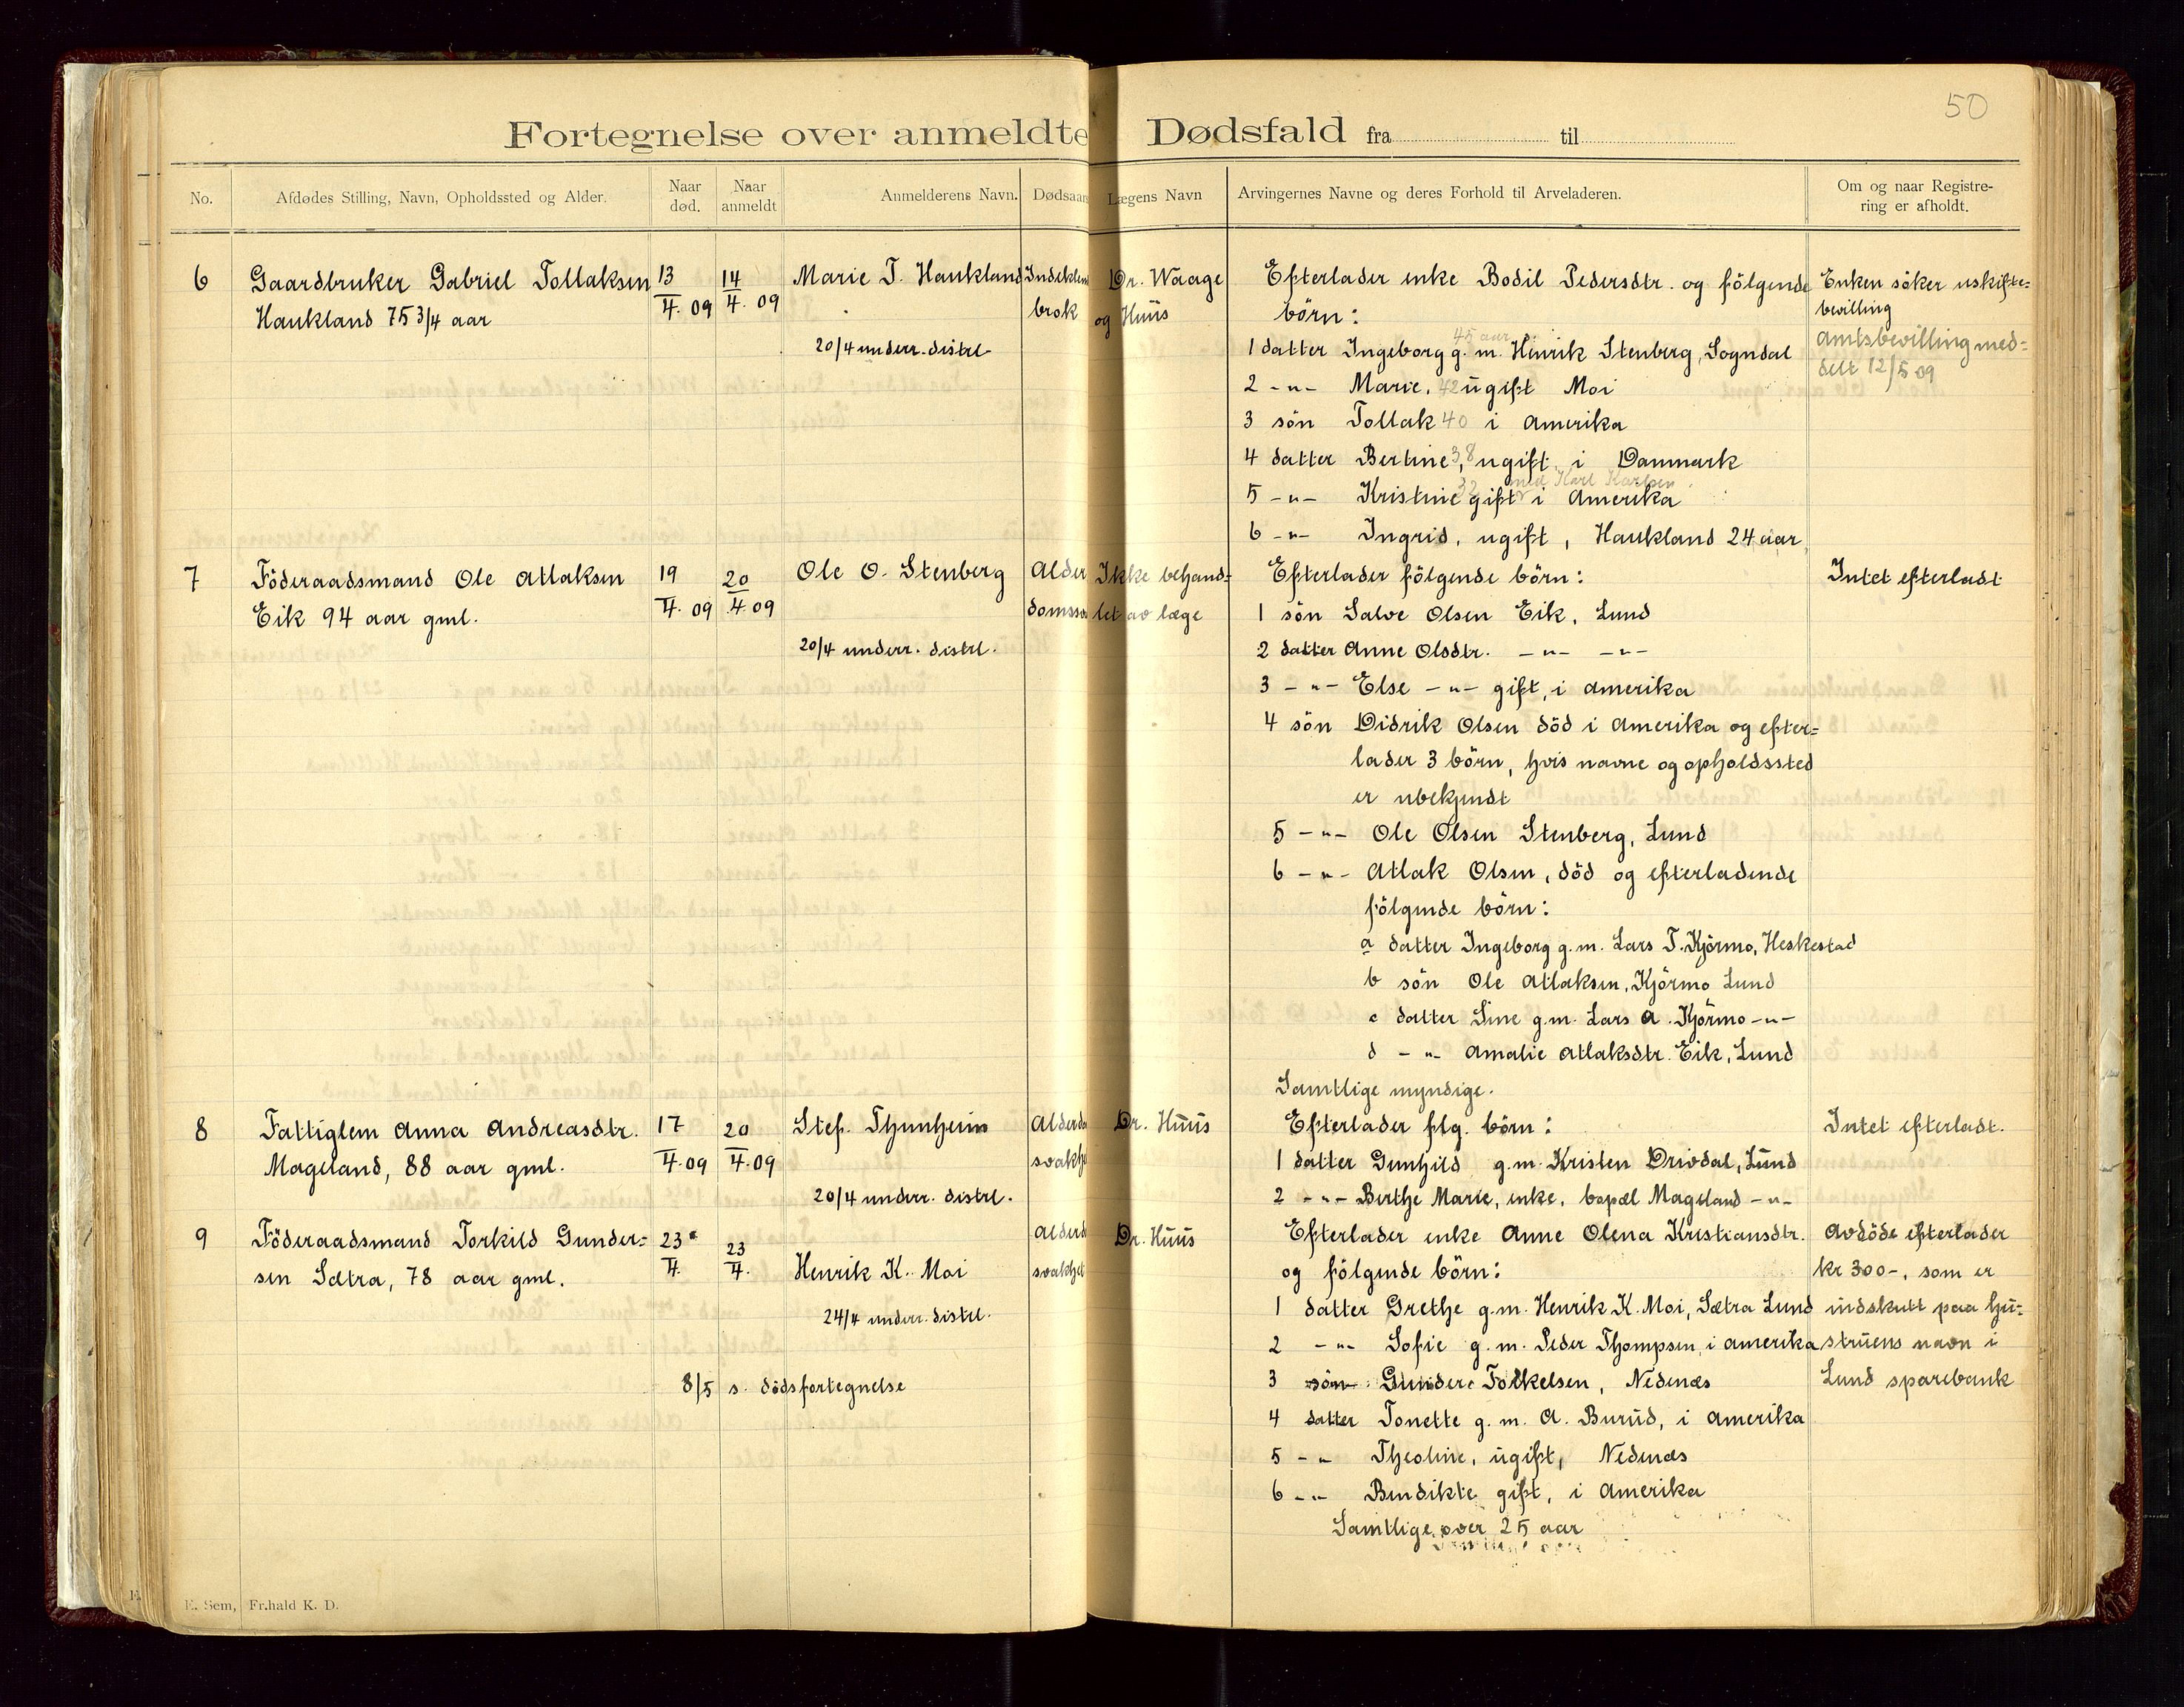 50
Fortegnelse over anmeldte Dødsfald fra til
No. Afdødes Stilling, Navn, Opholdssted og Alder. Naar død. Naar anmeldt Anmelderens Navn. Dødsaar Lægens Navn Arvingernes Navne og deres Forhold til Arveladeren. Om og naar Registrering er afholdt.
6 Gaardbruker Gabriel Tollaksen 13 14 Marie T. Haukland Indeklem Dr. Waage Efterlader enke Bodil Pedersdtr. og fölgende Enken söker uskifte=
Haukland 75 3/4 aar 4. 09 4. 09 brok og Huus börn: bevilling
20/4 underr. distrl. 1 datter Ingeborg 45 aar g. m. Henrik Stenberg, Sogndal amtsbevilling med=
2 -"- Marie, 42 ugift Moi delt 12/5 09
3 sön Tollak 40 i Amerika
4 datter Bertine, 38 ugift i Danmark
5 -"- Kristine 32 gift med Karl Karlsen i Amerika
6 -"- Ingrid, ugift, Haukland 24 aar
7 Föderaadsmand Ole Atlaksen 19 20 Ole O. Stenberg Alder Ikke behand= Efterlader fölgende börn: Intet efterladt
Eik 94 aar gml. 4. 09 4. 09 domssva let av læge 1 sön Salve Olsen Eik, Lund
20/4 underr. distrl. 2 datter Anne Olsdtr. -"- -"-
3 -"- Else -"- gift, i Amerika
4 sön Didrik Olsen död i Amerika og efter=
lader 3 börn, hvis navne og opholdssted
er ubekjendt
5 -"- Ole Olsen Stenberg, Lund
6 -"- Atlak Olsen, död og efterladende
fölgende börn:
a datter Ingeborg g.m. Lars T. Kjörmo, Heskestad
b sön Ole Atlaksen, Kjörmo Lund
c datter Sine g.m. Lars A. Kjörmo -"-
d -"- Amalie Atlaksdtr. Eik, Lund
Samtlige myndige.
8 Fattiglem Anna Andreasdtr. 17 20 Stef. Thunheim Alderdo Dr. Huus Efterlader flg. börn: Intet efterladt.
Mageland, 88 aar gml. 4. 09 4. 09 svakhe 1 datter Gunhild g.m. Kristen Drivdal, Lund
20/4 underr. distrl. 2 -"- Berthe Marie, enke, bopæl Mageland -"-
9 Föderaadsmand Torkild Gunder= 23 23 Alderd Dr. Huus Efterlader enke Anne Olena Kristiansdtr. Avdöde efterlader
sen Sætra, 78 aar gml. 4. 4. Henrik K. Moi svakhet og fölgende börn: kr 300-, som er
24/4 underr. distrl. 1 datter Grethe g.m. Henrik K. Moi, Sætra Lund indskutt paa hu=
2 -"- Sofie g.m. Peder Thompsen, i Amerika struens navn i
8/5 s. dödsfortegnelse 3 sön Gunder Torkelsen, Nedenæs Lund sparebank
4 datter Tonette g. m. A. Burud, i Amerika
5 -"- Theoline, ugift, Nedenæs
6 -"- Bendikte gift, i Amerika
Samtlige over 25 aar
E. Sem, Fr.hald K. D.